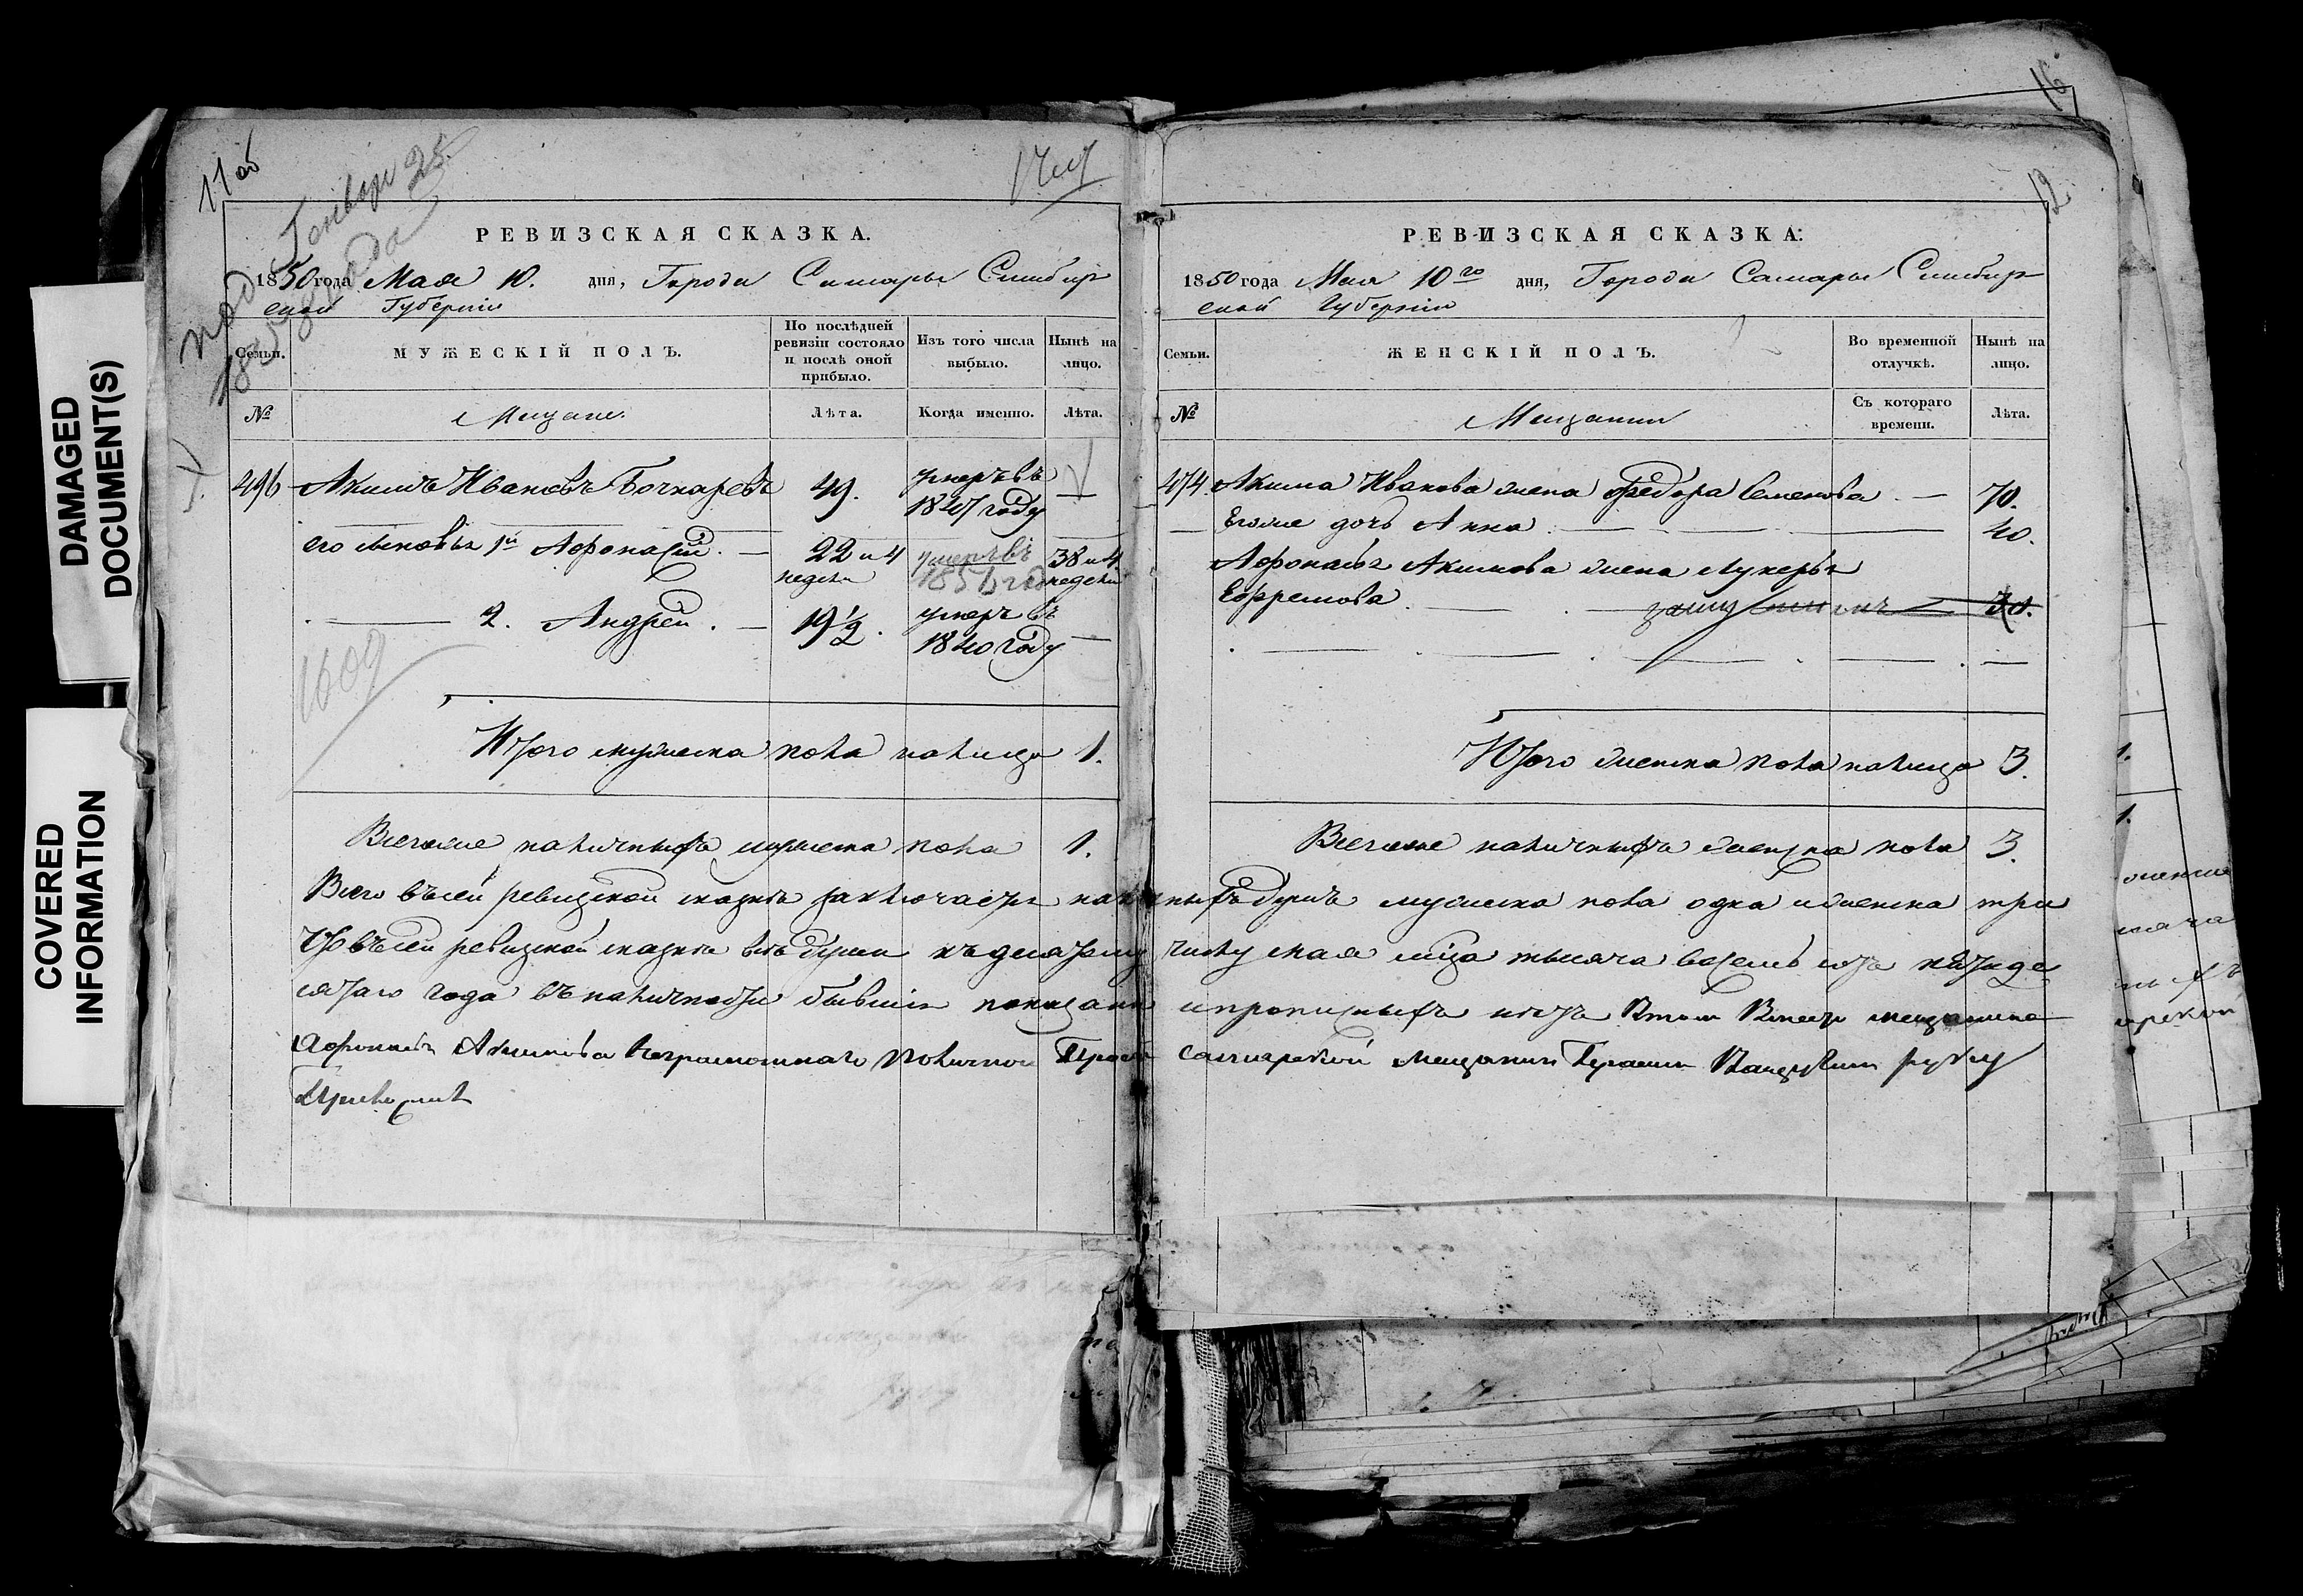 DAMAGED
DOCUMENT(S)
COVERED
INFORMATION
11 об
под. Генваря 25
1858 года
РЕВИЗСКАЯ СКАЗКА.
1850 года Мая 10. дня, Города Самары Симбир
ской Губернiи
Семьи.
МУЖЕСКIЙ ПОЛЪ.
По послѣдней ревизiи состояло и послѣ оной прибыло.
Изъ того числа выбыло.
Нынѣ на лицо.
№
Мещане.
Лѣта.
Когда именно.
Лѣта.
496 Акимъ Ивановъ Бочкаревъ 49. умеръ въ 1847 году —
его сыновья 1й Афонасий. — 22 и 4 недели умеръ въ 38 и 4 недели
2. Андрей. — 19½. умеръ въ 1840 году —
1609
Итого мужеска пола налицо 1.
Всегоже наличныхъ мужеска пола 1.
12
РЕВИЗСКАЯ СКАЗКА.
1850 года Мая 10го дня, Города Самары Симбир
ской Губернiи
Семьи.
ЖЕНСКIЙ ПОЛЪ.
Во временной отлучкѣ.
Нынѣ на лицо.
№
Мещанки
Съ котораго времени.
Лѣта.
474 Акима Иванова жена Федора Семенова — 70.
Егоже дочь Анна. — 40.
Афонасья Акимова жена Лукерья
Ефремова. — 30.
Итого женска пола налицо 3.
Всегоже наличныхъ женска пола 3.
Всего въ сей ревизской сказкѣ заключается наличныхъ душъ мужеска пола одна и женска три
Что въ сей ревизской сказкѣ всѣ души къ десятому числу мая мѣца тысяча восемь сотъ пятиде
сятаго года въ наличности бывшiя показаны и прописныхъ нѣтъ Втом Вместо мещанина
Афонасья Акимова Неграмотнаго Поличной Прозбе самарской мещанин Герасим руку
Приложил